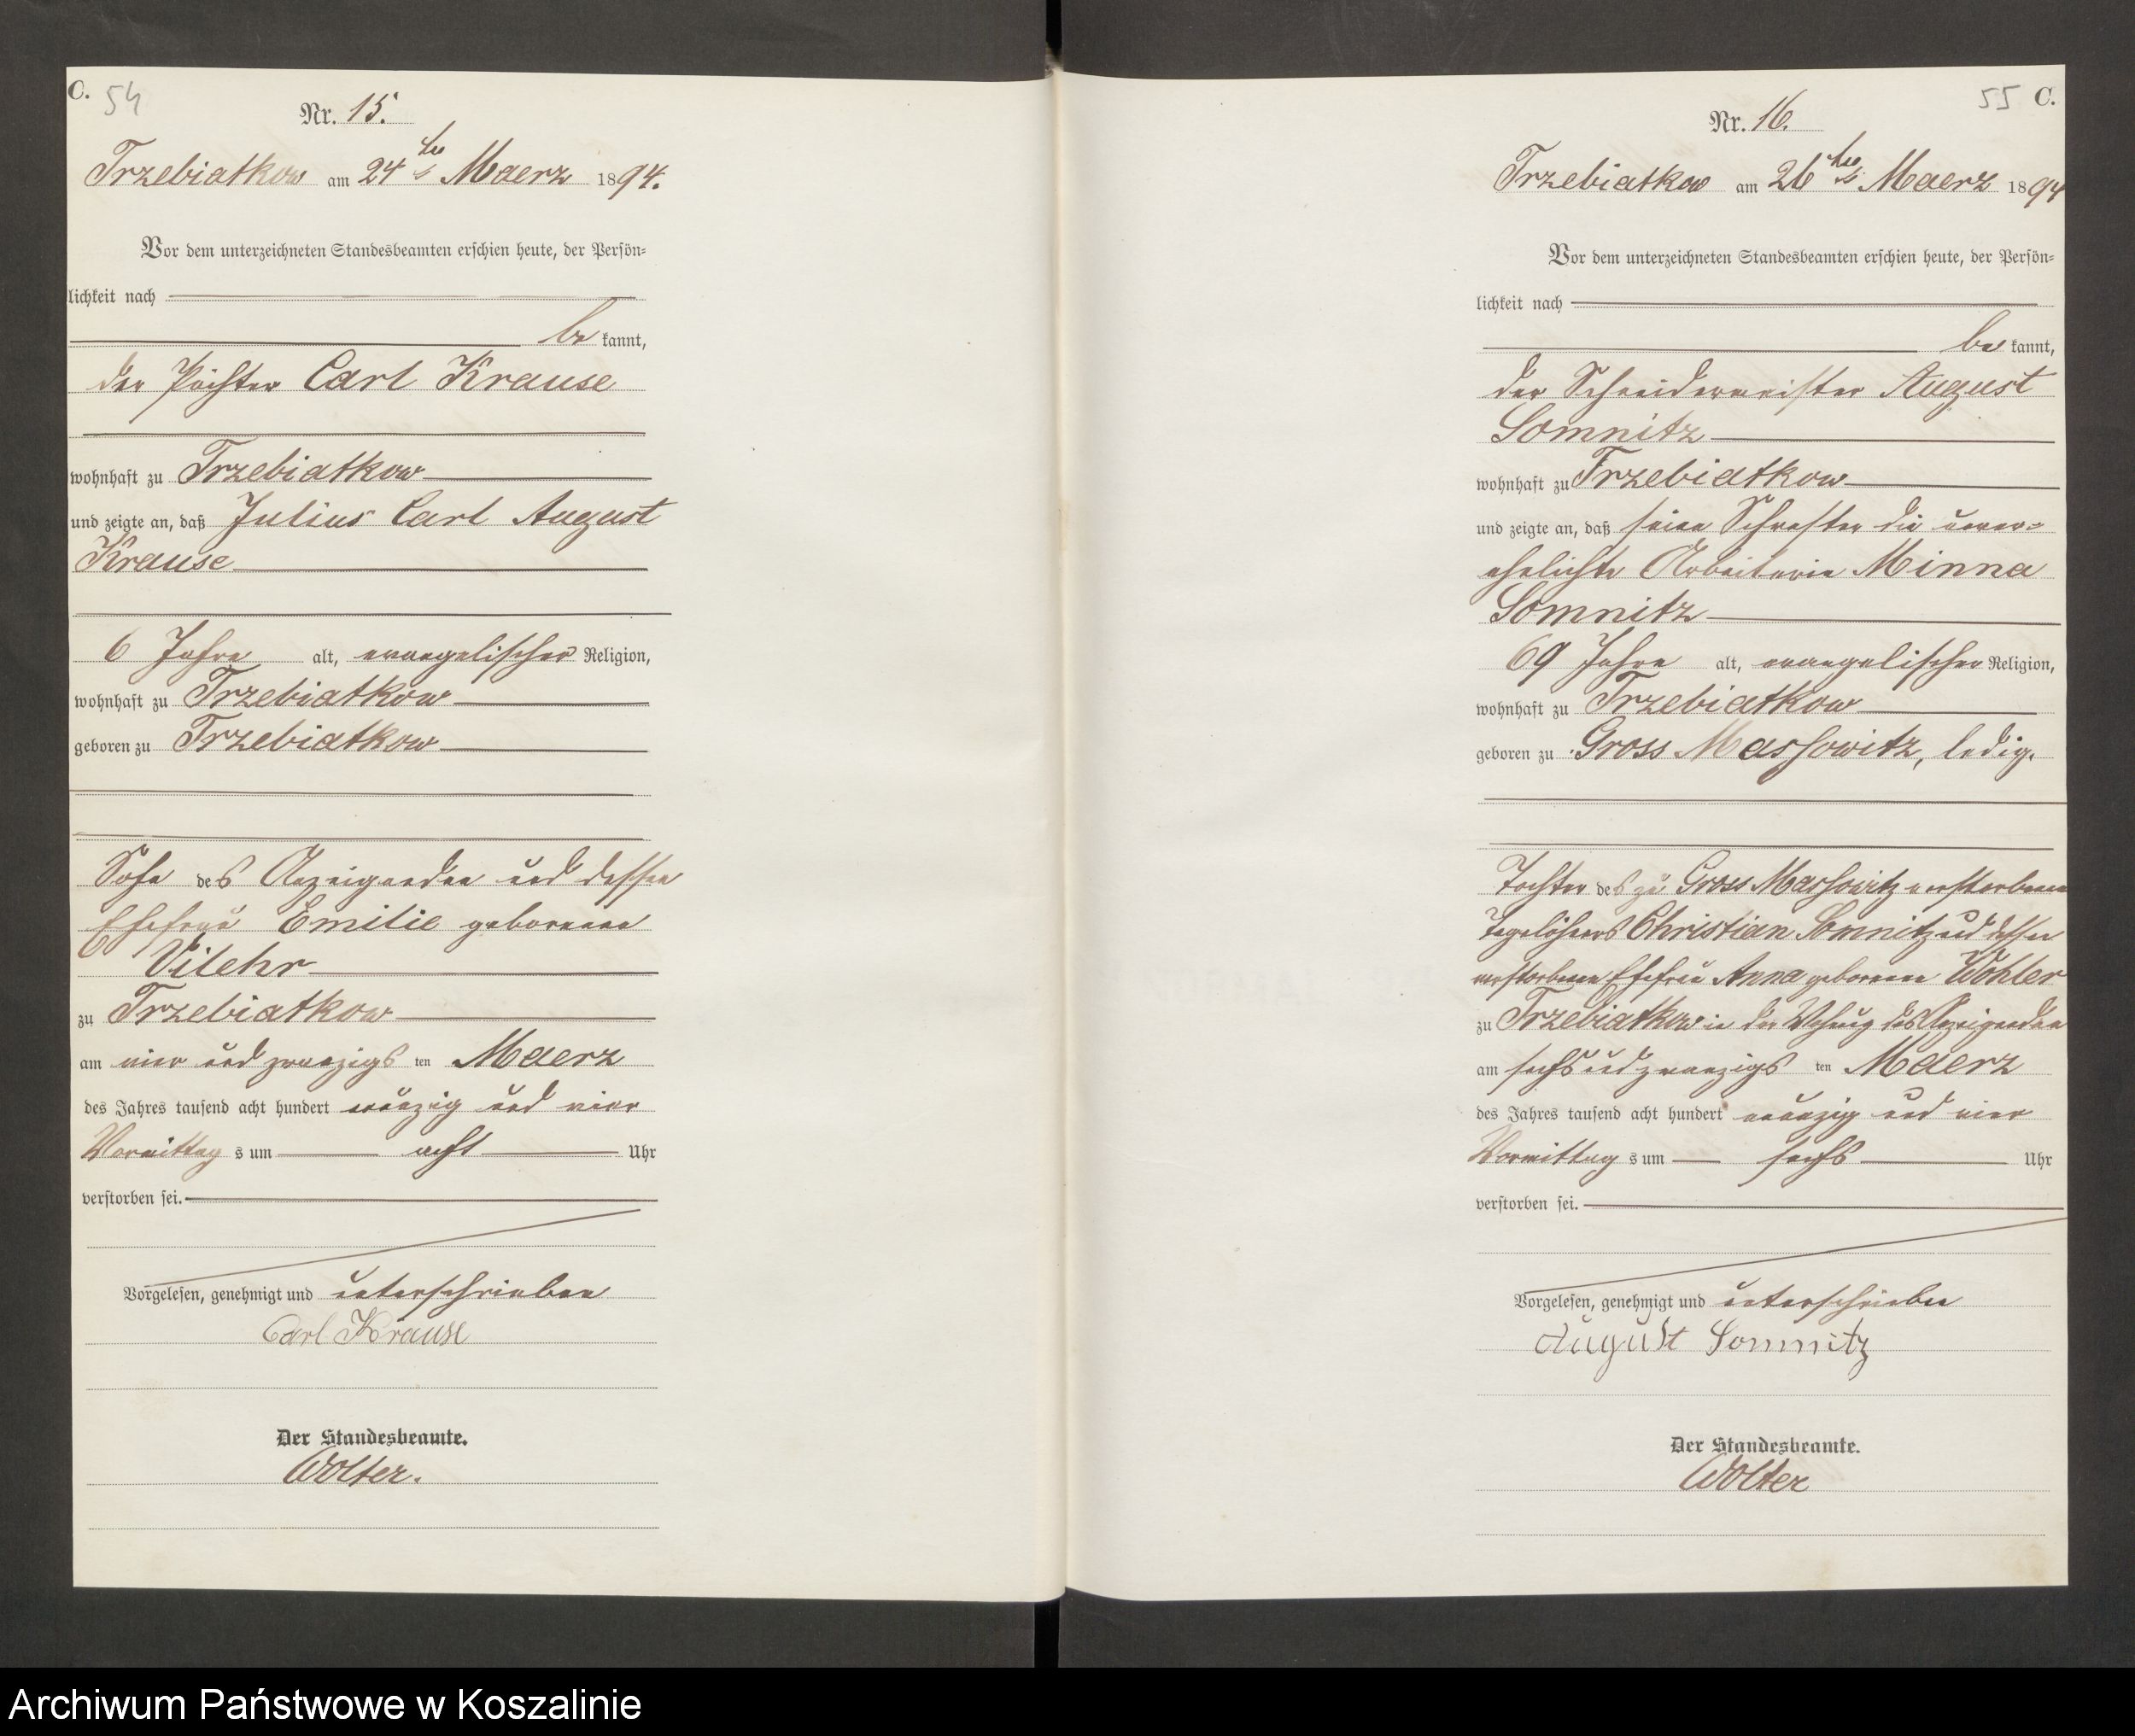 C. 54
Nr. 15.
Trzebiatkow am 24ten Maerz 1894.
Vor dem unterzeichneten Standesbeamten erschien heute, der Persön=
lichkeit nach
be kannt,
der Pächter Carl Krause
wohnhaft zu Trzebiatkow
und zeigte an, daß Julius Carl August
Krause
6 Jahre alt, evangelischer Religion,
wohnhaft zu Trzebiatkow
geboren zu Trzebiatkow
Sohn des Anzeigenden und dessen
Ehefrau Emilie geborenen
Vilehr
zu Trzebiatkow
am vier und zwanzigs ten Maerz
des Jahres tausend acht hundert neunzig und vier
Vormittag s um acht Uhr
verstorben sei.
Vorgelesen, genehmigt und unterschrieben
Carl Krause
Der Standesbeamte.
Wolter.
55 C.
Nr. 16.
Trzebiatkow am 26ten Maerz 1894
Vor dem unterzeichneten Standesbeamten erschien heute, der Persön=
lichkeit nach
be kannt,
der Schneidermeister August
Somnitz
wohnhaft zu Trzebiatkow
und zeigte an, daß seine Schwester die unver=
ehelichte Arbeiterin Minna
Somnitz
69 Jahre alt, evangelischer Religion,
wohnhaft zu Trzebiatkow
geboren zu Gross Massowitz, ledig.
Tochter des zu Gross Massowitz verstorbenen
Tagelöhners Christian Somnitz und dessen
verstorbenen Ehefrau Anna geborenen Wohler
zu Trzebiatkow in der Wohnung des Anzeigenden
am sechs und zwanzigs ten Maerz
des Jahres tausend acht hundert neunzig und vier
Vormittag s um sechs Uhr
verstorben sei.
Vorgelesen, genehmigt und unterschrieben
August Somnitz
Der Standesbeamte.
Wolter
Archiwum Państwowe w Koszalinie